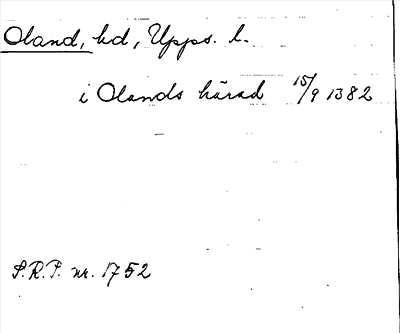 Oland, hd, Upps. l.
i Olands härad 15/9 1382
S.R.P. nr. 1752